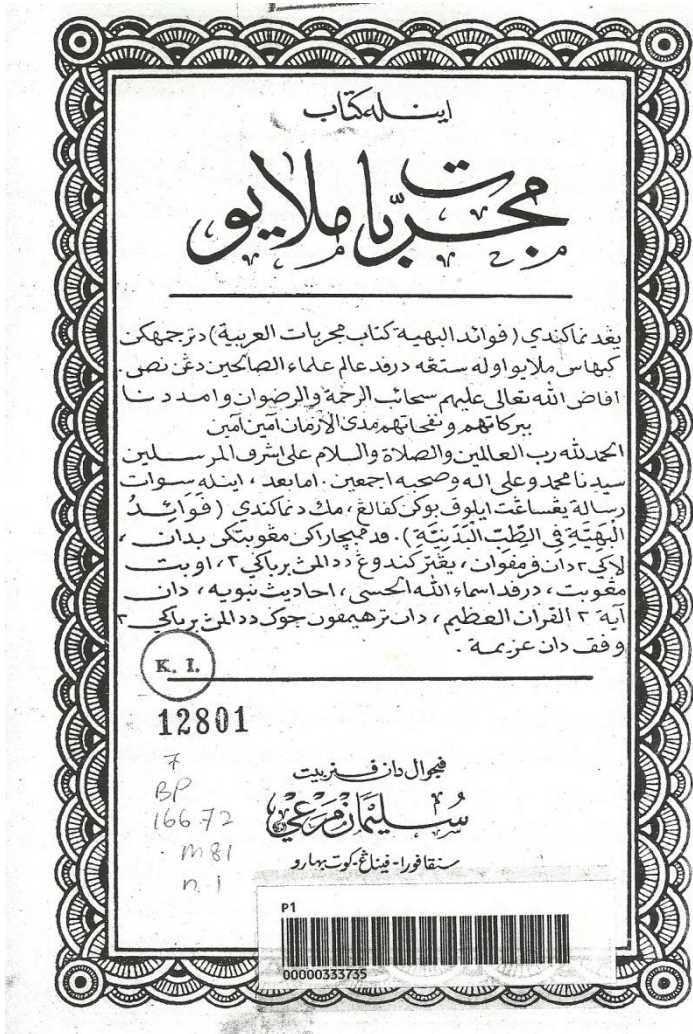 اينله كتاب
مجرّبات ملايو
يغد نماكندي (فوائد البهية كتاب مجربات العربية) دترجمهكن
كبهاس ملايو اوله ستڠه درفد عالم علماء الصالحين دغن نصى.
افاض الله تعالى عليهم سحائب الرحمة والرضوان وامددنا
ببركاتهم ونفحاتهم مدى الازمان آمين آمين
الحمدلله رب العالمين والصلاة والسلام على اشرف المرسلين
سيدنا محمد وعلى اله وصحبه اجمعين. اما بعد، اينله سوات
رسالة يغساغت ايلوق بوكن كفالغ، مك دنماكندي (فَوَائِدُ
الْبَهِيَّةِ فِى الطِّبِّ الْبَدَنِيَّةِ). فد ممبچاراكن مغوبتكن بدان،
لاكي٢ دان فرمفوان، يغتركندوغ ددالمڽ برباكي٢، اوبت
مغوبت، درفد اسماء الله الحسنى، احاديث نبويه، دان
آية٢ القران العظيم، دان ترهيمفون جوك ددالمڽ برباكي٢
وفق دان عزيمة.
K. I.
12801
7
BP
166.72
M81
n.1
فنجوال دان فنربيت
سُليمان مرعي
سنقافورا - فيناڠ - كوت بهارو
P1
00000333735